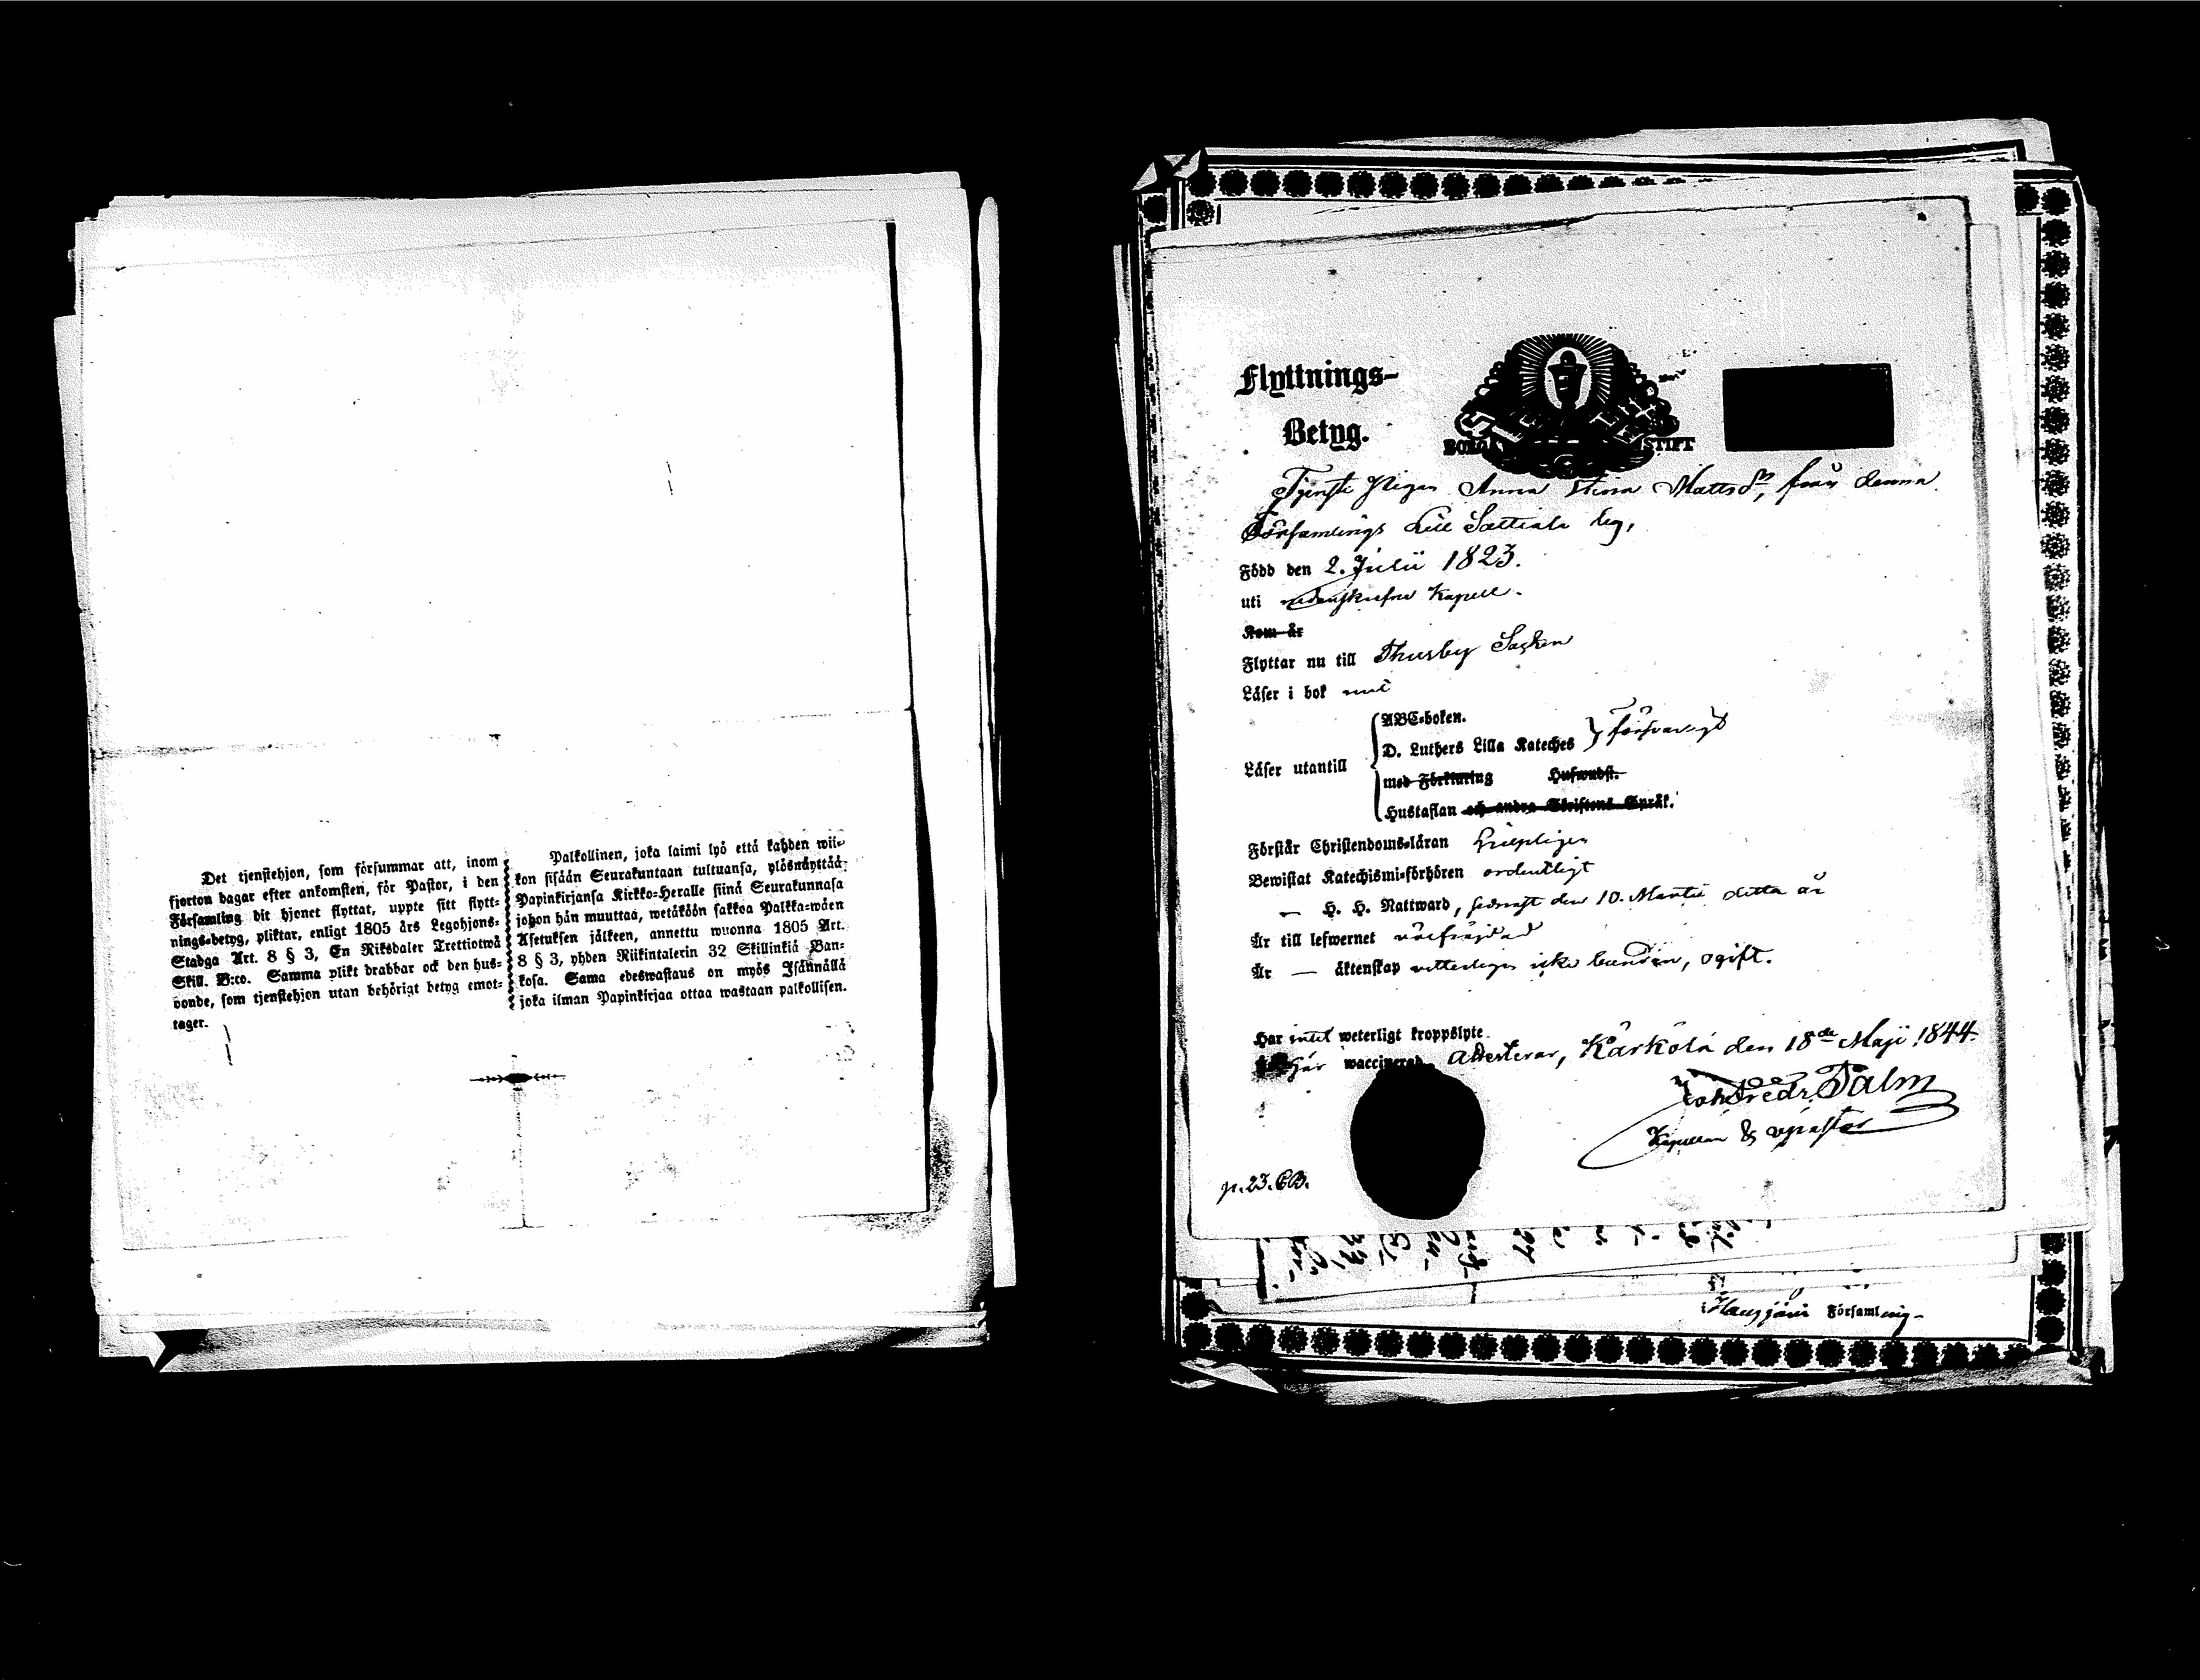 Det tjenstehjon, som försummar att, inom
fjorton dagar efter ankomsten, för Pastor, i den
Församling dit hjonet flyttat, uppte sitt flytt-
nings-betyg, pliktar, enligt 1805 års Legohjons-
Stadga Art. 8 § 3, En Riksdaler Trettiotwå
Skill. B:co. Samma plikt drabbar ock den hus-
bonde, som tjenstehjon utan behörigt betyg emot-
tager.
Palkollinen, joka laimi lyö että kahden wii-
kon sisään Seurakuntaan tultuansa, ylösnäyttää
Papinkirjansa Kirkko-Heralle siinä Seurakunnasa
johon hän muuttaa, wetäköön sakkoa Palkka-wäen
Asetuksen jälkeen, annettu wuonna 1805 Art.
8 § 3, yhden Riikintalerin 32 Skillinkiä Ban-
kosa. Sama edeswastaus on myös Isännällä
joka ilman Papinkirjaa ottaa wastaan palkollisen.
Flyttnings-
Betyg.
BORGÅ STIFT
Tjenste Pigan Anna Stina Mattsdr, från denna
Församlings Lill Sattiala by,
Född den 2. Julii 1823.
uti Kapell.
Kom år
Flyttar nu till Thusby Socken
Läser i bok
Läser utantill
ABC-boken.
D. Luthers Lilla Kateches } försvarligt
med Förklaring Huswudst.
Hustaflan och andra Skriftens Språk.
Förstår Christendoms-läran
Bewistat Katechismi-förhören ordentligt
— H. H. Nattward, sednast den 10. Martii detta år
Är till lefwernet
Är — äktenskap vetterligen icke bunden, ogift.
Har intet weterligt kroppslyte
Är waccinerad, attesterar, Kärkölä den 18de Maji 1844.
Joh Fredr. Palm
Kapellan & vpastor
p. 23. CB.
Hausjärvi Församling